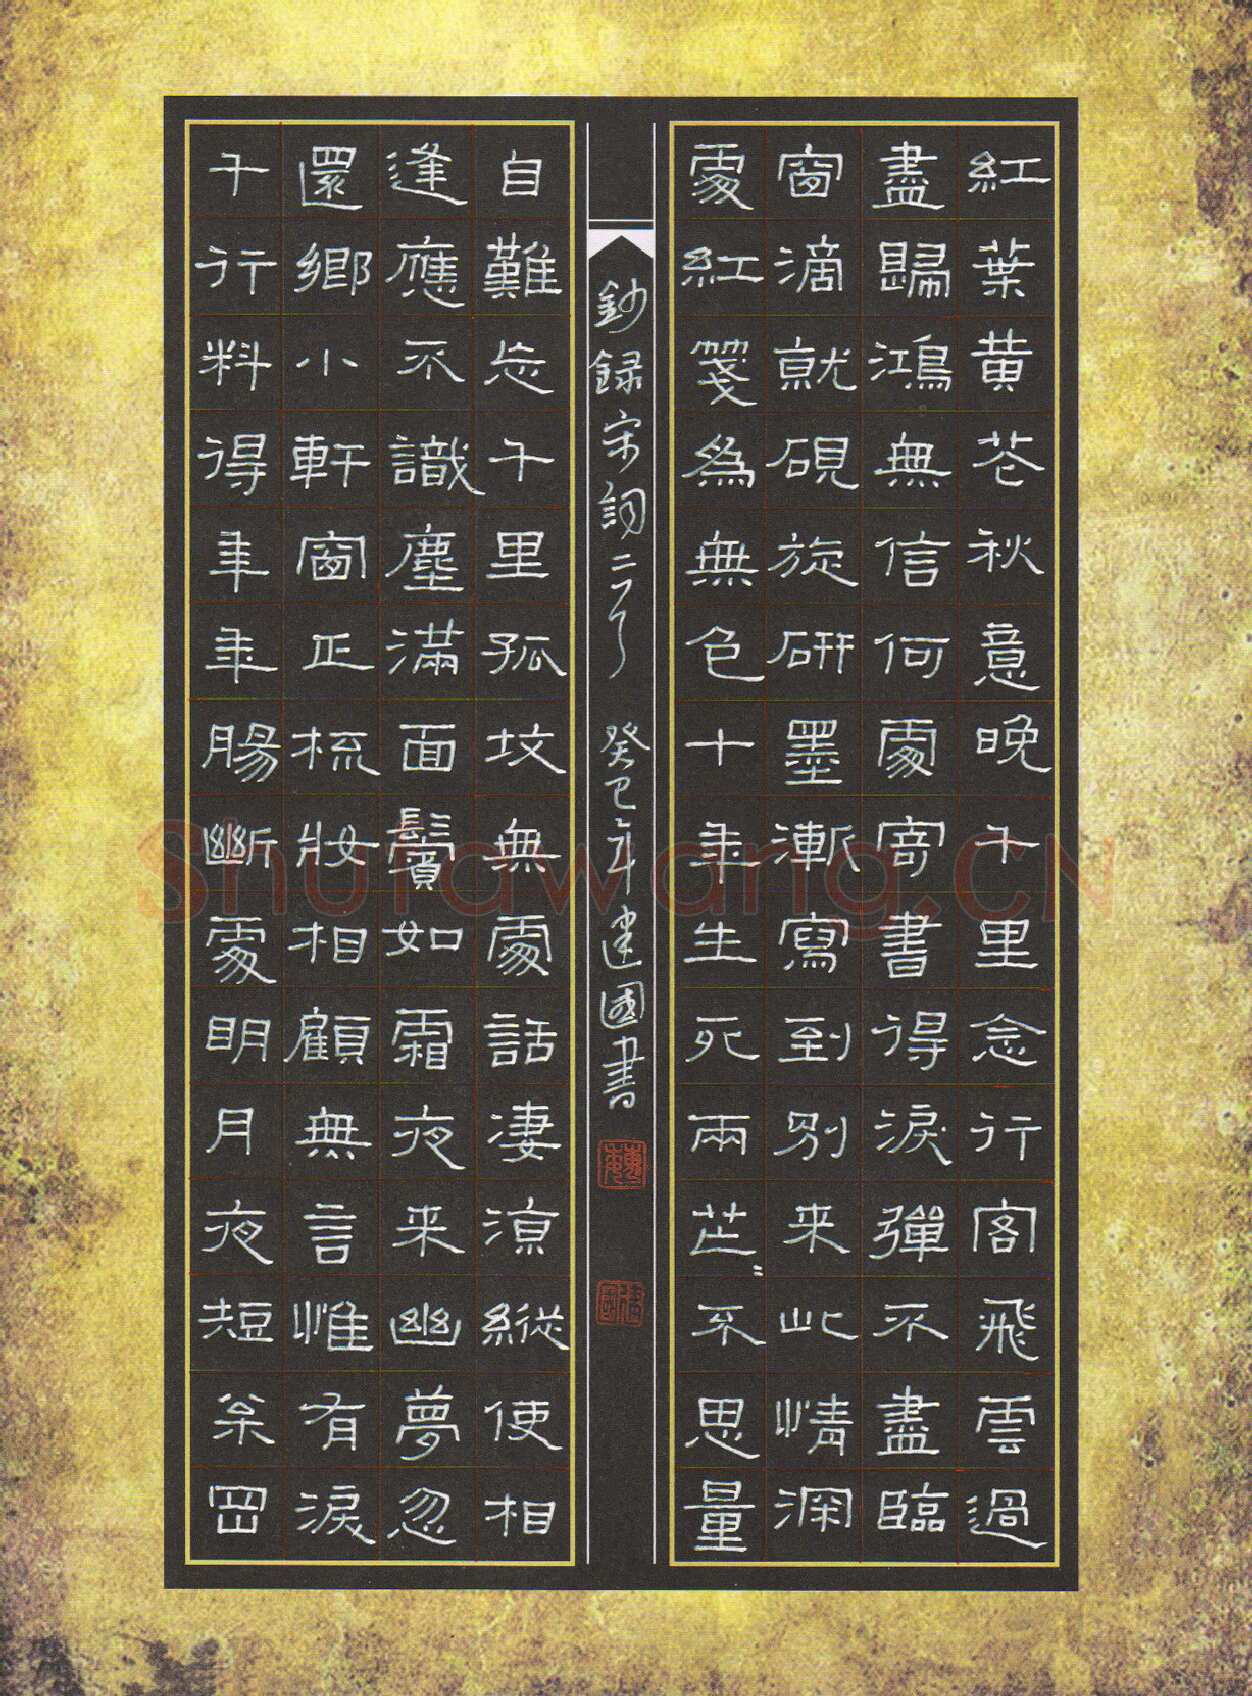 紅葉黄花秋意晚千里念行客飛雲過
盡歸鴻無信何處寄書得淚彈不盡臨
窗滴就硯旋研墨漸寫到別来此情深
處紅箋為無色十年生死兩茫〻不思量
自難忘千里孤坟無處話凄凉縱使相
逢應不識塵滿面鬢如霜夜来幽夢忽
還鄉小軒窗正梳妝相顧無言惟有淚
千行料得年年腸斷處明月夜短松岡
鈔録宋詞二首 癸巳年建國書
Shufawang.CN